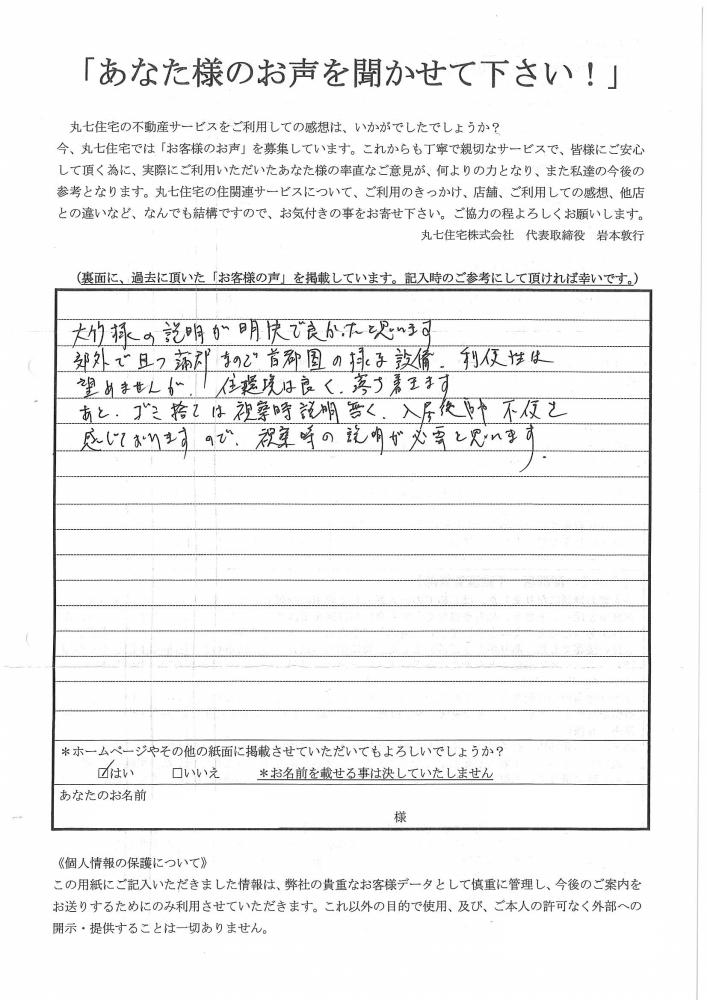 「あなた様のお声を聞かせて下さい！」
丸七住宅の不動産サービスをご利用しての感想は、いかがでしたでしょうか？
今、丸七住宅では「お客様のお声」を募集しています。これからも丁寧で親切なサービスで、皆様にご安心
して頂く為に、実際にご利用いただいたあなた様の率直なご意見が、何よりの力となり、また私達の今後の
参考となります。丸七住宅の住関連サービスについて、ご利用のきっかけ、店舗、ご利用しての感想、他店
との違いなど、なんでも結構ですので、お気付きの事をお寄せ下さい。ご協力の程よろしくお願いします。
丸七住宅株式会社　代表取締役　岩本敦行
（裏面に、過去に頂いた「お客様の声」を掲載しています。記入時のご参考にして頂ければ幸いです。）
大竹様の説明が明快で良かったと思います
郊外で且つ蒲郡なので首都圏の様な設備、利便性は
望めませんが、住環境は良く、落ち着きます
あと、ゴミ捨ては視察時説明無く、入居後 不便を
感じておりますので、視察時の説明が必要と思います.
＊ホームページやその他の紙面に掲載させていただいてもよろしいでしょうか？
☑はい　□いいえ　＊お名前を載せる事は決していたしません
あなたのお名前
様
《個人情報の保護について》
この用紙にご記入いただきました情報は、弊社の貴重なお客様データとして慎重に管理し、今後のご案内を
お送りするためにのみ利用させていただきます。これ以外の目的で使用、及び、ご本人の許可なく外部への
開示・提供することは一切ありません。